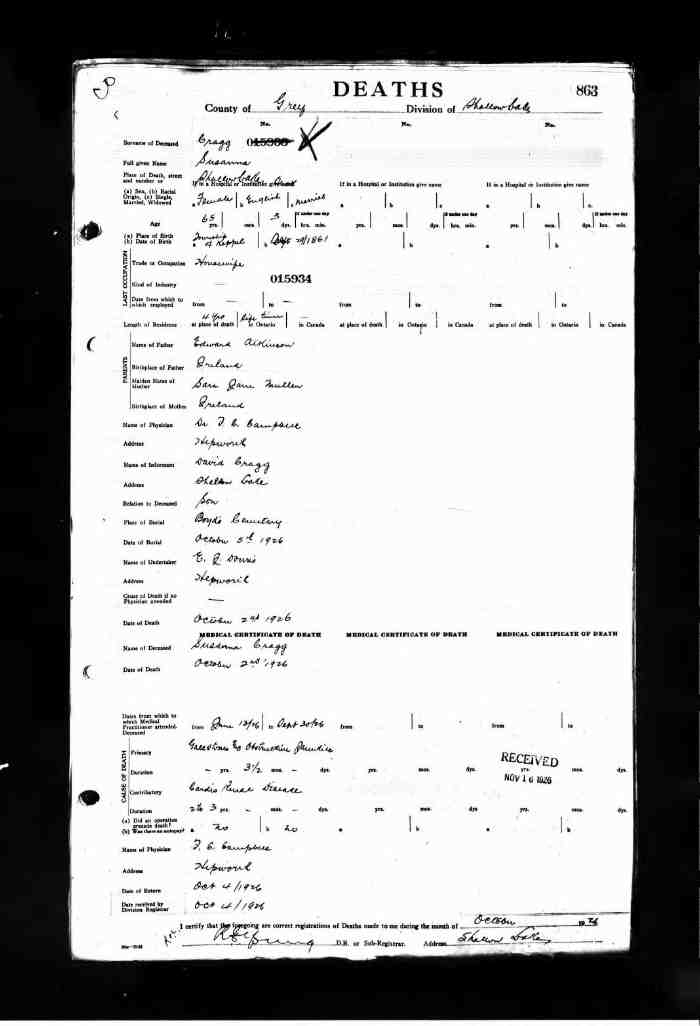 DEATHS 863
County of Grey Division of Shallow Lake
No. No. No.
Surname of Deceased Cragg 015933
Full given Name Susanna
Place of Death, street and number or Shallow Lake
If in a Hospital or Institution give name If in a Hospital or Institution give name
(a) Sex, (b) Racial Origin, (c) Single, Married, Widowed a Female b English c Married a b c a b c
Age 65 yrs. mos. 3 dys. If under one day hrs. min. yrs. mos. dys. If under one day hrs. min. yrs. mos. dys. If under one day hrs. min.
(a) Place of Birth (b) Date of Birth a Township of Keppel b Sept 29/1861 a b a b
LAST OCCUPATION
Trade or Occupation Housewife
Kind of Industry — 015934
Date from which to which employed from — to — from to from to
Length of Residence 4 yrs at place of death Life time in Ontario — in Canada at place of death in Ontario in Canada at place of death in Ontario in Canada
PARENTS
Name of Father Edward Atkinson
Birthplace of Father Ireland
Maiden Name of Mother Sara Jane Mullen
Birthplace of Mother Ireland
Name of Physician Dr T. C. Campbell
Address Hepworth
Name of Informant David Cragg
Address Shallow Lake
Relation to Deceased Son
Place of Burial Boyds Cemetery
Date of Burial October 5th 1926
Name of Undertaker E. J. Downs
Address Hepworth
Cause of Death if no Physician attended —
Date of Death October 2nd 1926
MEDICAL CERTIFICATE OF DEATH MEDICAL CERTIFICATE OF DEATH MEDICAL CERTIFICATE OF DEATH
Name of Deceased Susanna Cragg
Date of Death October 2nd 1926
Dates from which to which Medical Practitioner attended Deceased from June 13/26 to Sept 30/26 from to from to
CAUSE OF DEATH
Primary Gallstones Obstructive Jaundice
RECEIVED
NOV 16 1926
Duration – yrs. 3½ mos. – dys. yrs. mos. dys. yrs. mos. dys.
Contributory Cardio Renal Disease
Duration 2 to 3 yrs. – mos. – dys. yrs. mos. dys. yrs. mos. dys.
(a) Did an operation precede death? (b) Was there an autopsy? a no b no a b a b
Name of Physician T. C. Campbell
Address Hepworth
Date of Return Oct 4/1926
Date received by Division Registrar Oct 4/1926
I certify that the foregoing are correct registrations of Deaths made to me during the month of October 1926
D.R. or Sub-Registrar. Address Shallow Lake